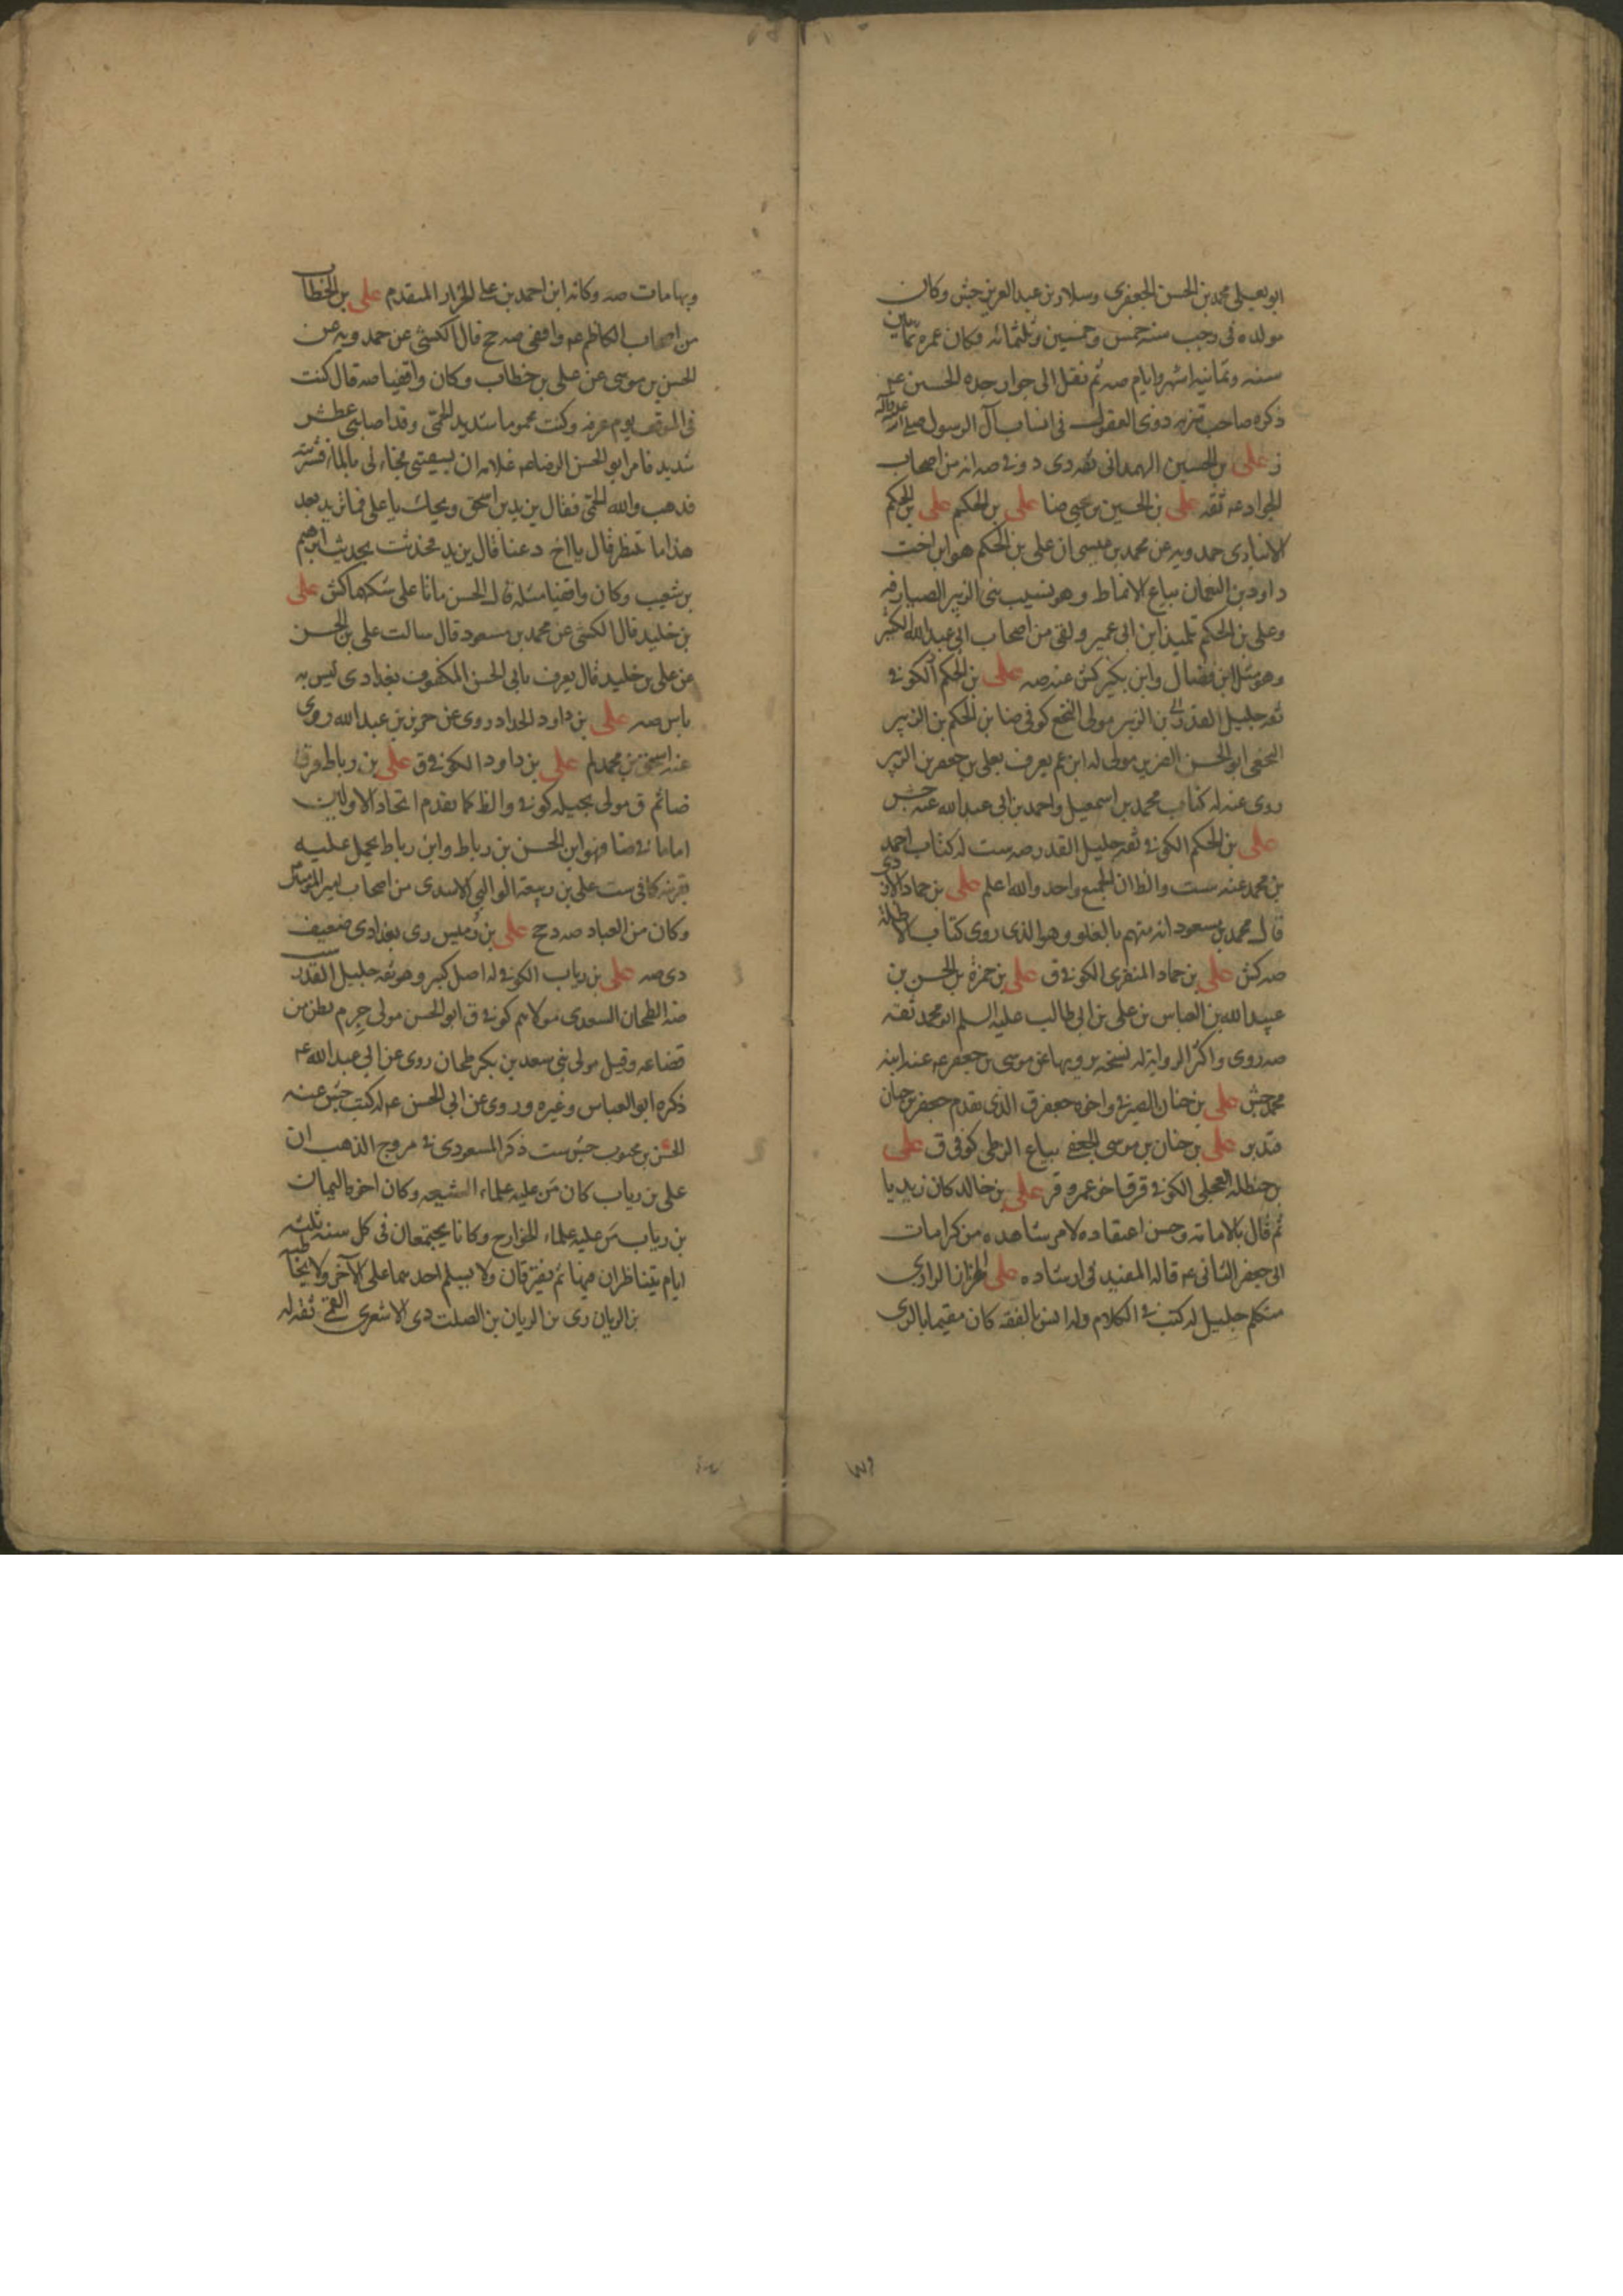 ابو يعلى محمد بن الحسن الجعفرى وسلار بن عبد العزيز جش وكان
مولده فى رجب سنة خمس وخمسين وثلثمائه وكان عمره ثمانين
سنه وثمانيه اشهر وايام صه ثم نقل الى جوار جده الحسين عه
ذكره صاحب تنزيه ذوى العقول فى انساب آل الرسول صلى الله عليه وآله
ز على بن الحسين الهمدانى ثقه دى د وفى صه انه من اصحاب
الجواد عه ثقه على بن الحسين بن يحيى ضا على بن الحكم على بن الحكم
الانبارى حمدويه عن محمد بن عيسى ان على بن الحكم هو ابن اخت
داود بن النعمان بياع الانماط وهو نسيب بنى الزبير الصيارفه
وعلى بن الحكم تلميذ ابن ابى عمير ولقى من اصحاب ابى عبد الله الكثير
وهو مثل ابن فضال وابن بكير كش عنه صه على بن الحكم الكوفى
ثقه جليل القدر بن الزبير مولى النخع كوفى ضا بن الحكم بن الزبير
النخعى ابو الحسن الضرير مولى له ابن عم يعرف بعلى بن جعفر بن الزبير
روى عنه له كتاب محمد بن اسمعيل واحمد بن ابى عبد الله عنه جش
على بن الحكم الكوفى ثقه جليل القدر صه ست له كتاب احمد
بن محمد عنه ست والظ ان الجميع واحد والله اعلم على بن حماد الازدى
قال محمد بن مسعود انه متهم بالغلو وهو الذى روى كتاب الاظلة
صه كش على بن حماد المنقرى الكوفى ق على بن حمزة بن الحسن بن
عبيد الله بن العباس بن على بن ابى طالب عليه السلم ابو محمد ثقه
صه روى واكثر الروايه له نسخه يرويها عن موسى بن جعفر عه عنه ابنه
محمد جش على بن حنان الصيرفى واخوه جعفر ق الذى تقدم جعفر بن حيان
فتدبر على بن حنان بن موسى الجعفى بياع الزطى كوفى ق على
بن حنظله العجلى الكوفى قر ق اخو عمرو قر على بن خالد كان زيديا
ثم قال بالامامة وحسن اعتقاده لامر شاهده من كرامات
ابى جعفر الثانى عه قاله المفيد فى ارشاده على الخزاز الرازى
متكلم جليل له كتب فى الكلام وله انس بالفقه كان مقيما بالرى
وبها مات صه وكانه ابن احمد بن على الخزاز المتقدم على بن الخطاب
من اصحاب الكاظم عه واقفى صه جخ قال الكشى عن حمدويه عن
الحسن بن موسى عن على بن خطاب وكان واقفيا صه قال كنت
فى الموقف يوم عرفه وكنت محموما شديد الحمى وقد اصابنى عطش
شديد فامر ابو الحسن الرضا عه غلامه ان يسقينى فجاء لى بالماء فشربته
فذهب والله الحمى فقال يزيد بن اسحق ويحك يا على فما تريد بعد
هذا ما تنتظر قال يا اخ دعنا قال يزيد فحدثت بحديث ابرهيم
بن شعيب وكان واقفيا مثله قال الحسن ماتا على شكهما كش على
بن خليد قال الكشى عن محمد بن مسعود قال سالت على بن الحسن
عن على بن خليد قال يعرف بابى الحسن المكفوف بغدادى ليس به
باس صه على بن داود الحداد روى عن حريز بن عبد الله روى
عنه اسحق بن محمد لم على بن داود الكوفى ق على بن رباط قر ق
ضا ثم ق مولى بجيله كوفى والظ كما تقدم اتحاد الاولين
اما ما فى ضا فهو ابن الحسن بن رباط وابن رباط يحمل عليه
بقرينه كافى ست على بن ربيعة الوالبى الاسدى من اصحاب امير المؤمنين
وكان من العباد صه د جخ على بن رميس رى بغدادى ضعيف
دى صه على بن رياب الكوفى له اصل كبير وهو ثقه جليل القدر ست
صه الطحان السعدى مولاهم كوفى ق ابو الحسن مولى جرم بطن من
قضاعه وقيل مولى بنى سعد بن بكر طحان روى عن ابى عبد الله عه
ذكره ابو العباس وغيره وروى عن ابى الحسن عه له كتب جش عنه
الحسن بن محبوب جش ست ذكر المسعودى فى مروج الذهب ان
على بن رياب كان من عليه علماء الشيعه وكان اخوه اليمان
بن رياب من عليه علماء الخوارج وكانا يجتمعان فى كل سنه ثلثه
ايام يتناظران فيها ثم يفترقان ولا يسلم احدهما على الآخر ولا يخاطبه
بن الريان دى بن الريان بن الصلت دى الاشعرى القمى ثقه له